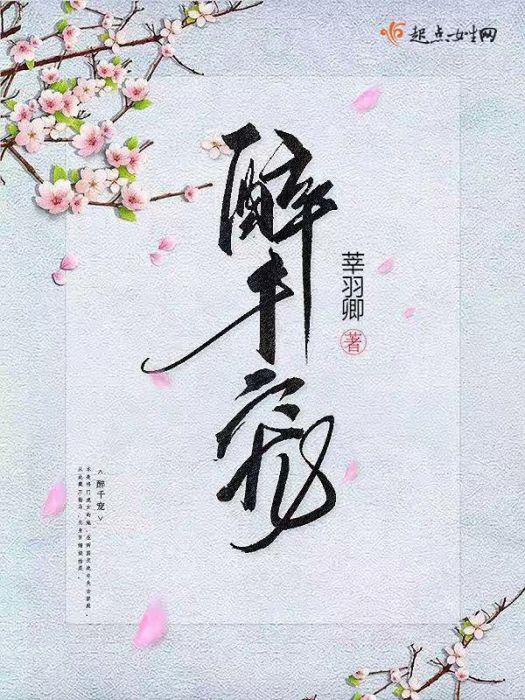 起点女生网
醉千宠
莘羽卿
著
︿醉千宠﹀